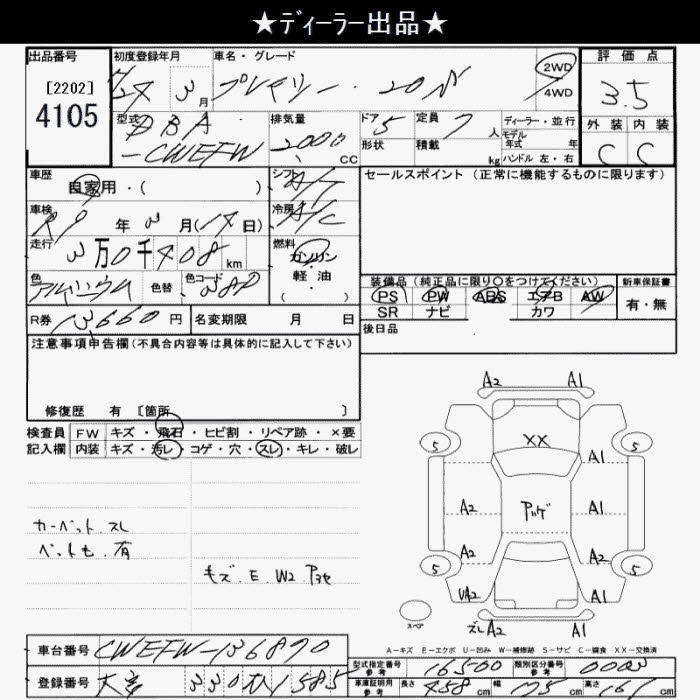 ★ディーラー出品★
出品番号 初度登録年月 車名・グレード 評価点
[2202]
4105
24 3月 プレマシー 20 2WD 4WD 3.5
型式 DBA-CWEFW
排気量 2000 CC
ドア 5 定員 7 人
形状 積載 kg
ディーラー・並行
モデル年式 年
ハンドル 左・右
外装 内装
C C
車歴 自家用・( )
シフト A/T
セールスポイント (正常に機能するものに限ります)
車検 R1 年 3 月(14日)
冷房 A/C
走行 3万0千408 km
燃料 ガソリン 軽・油 ( )
色 アルミニウム 色替 色コード 38P
装備品 (純正品に限り○をつけてください) 新車保証書
PS PW ABS エアB AW 有・無
SR ナビ カワ
R券 13660 円 名変期限 月 日
後日品
注意事項申告欄(不具合内容等は具体的に記入して下さい)
修復歴 有 [箇所 ]
検査員 FW キズ・飛石・ヒビ割・リペア跡・×要
記入欄 内装 キズ・汚レ・コゲ・穴・スレ・キレ・破レ
カーペット.スレ
ペット毛.有
キズ.E.W2.
A2 A1
5 XX 5
A1
A2 A1
A2 A2
5 5
UA2 A1
スペア
ズレA2 A1
A-キズ E-エクボ U-凹み W-補修跡 S-サビ C-腐食 XX-交換済
車台番号 CWEFW-136890
型式指定番号 参考 16500 類別区分番号 参考 0003
登録番号 330 585
車庫証明用 参考 長さ 458 cm 幅 175 cm 高さ 161 cm